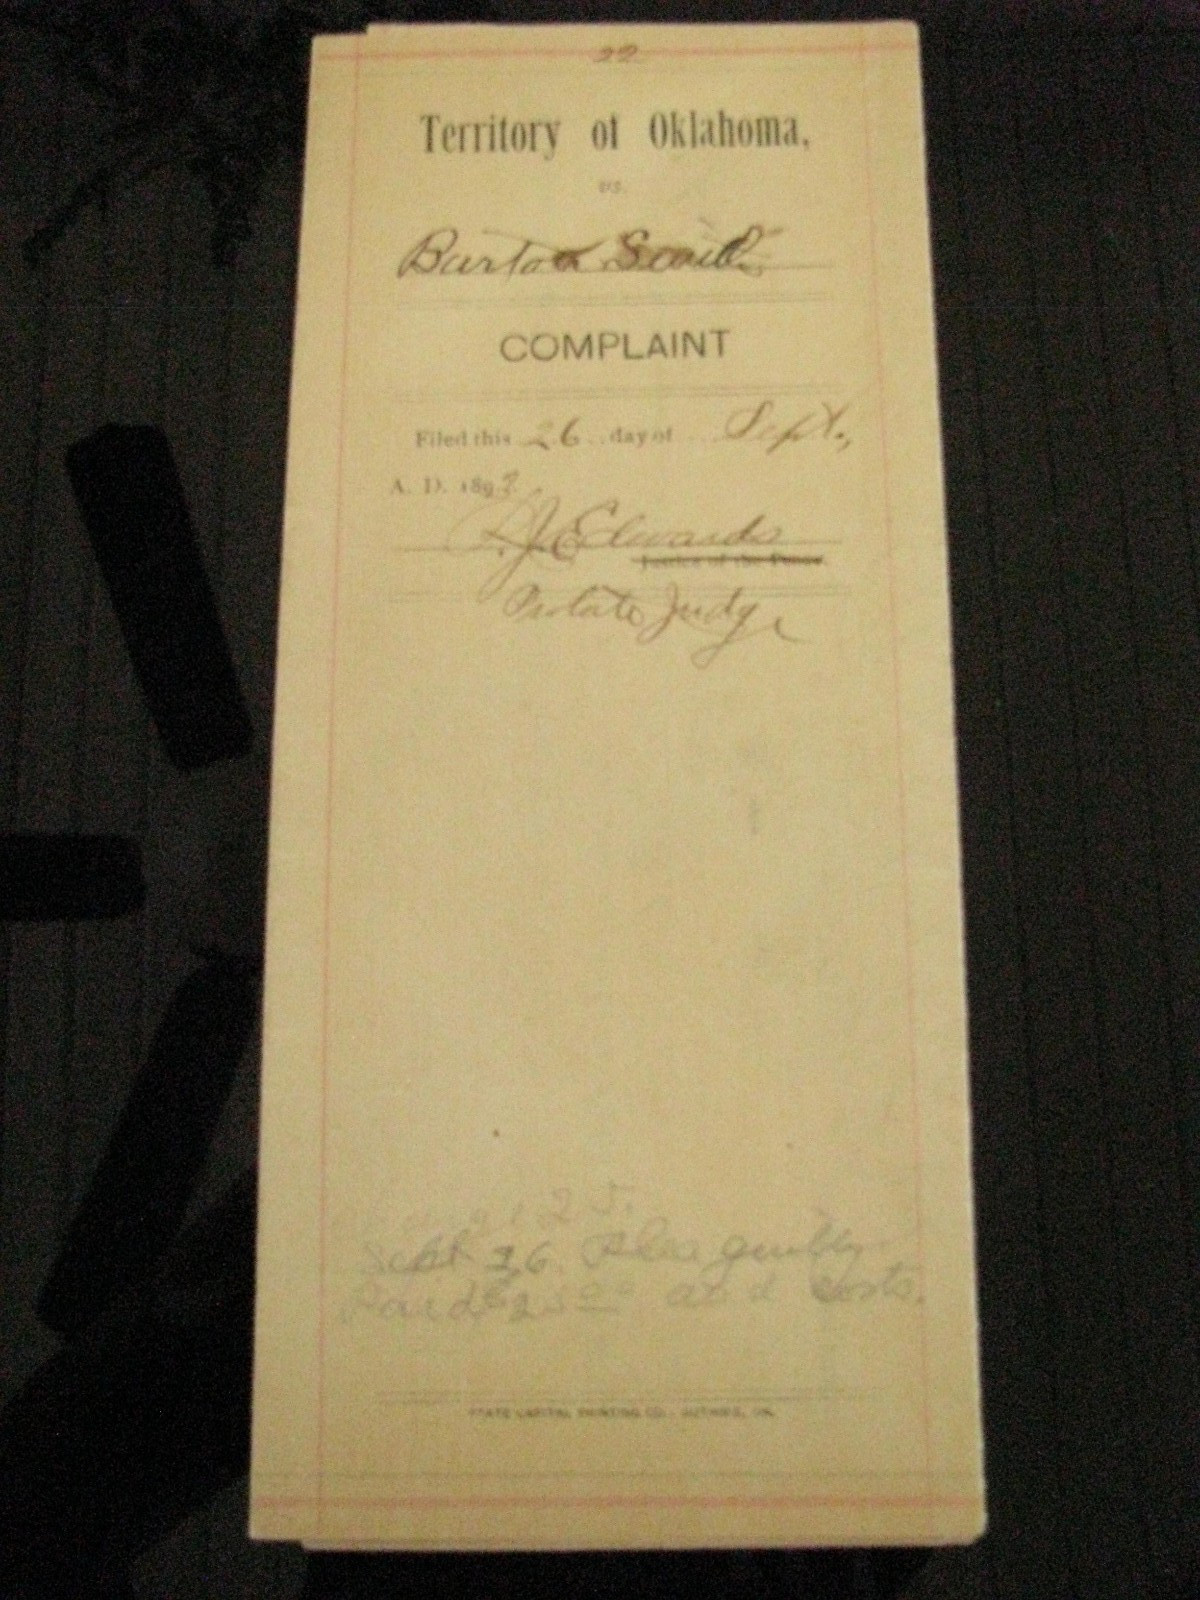 22
Territory of Oklahoma,
vs.
Barton Smith
COMPLAINT
Filed this 26 day of Sept.,
A. D. 189
J. Edwards
Justice of the Peace.
Probate Judge
25.
Sept 26. Plea guilty
25 00 and costs.
STATE CAPITAL PRINTING CO., GUTHRIE, OK.